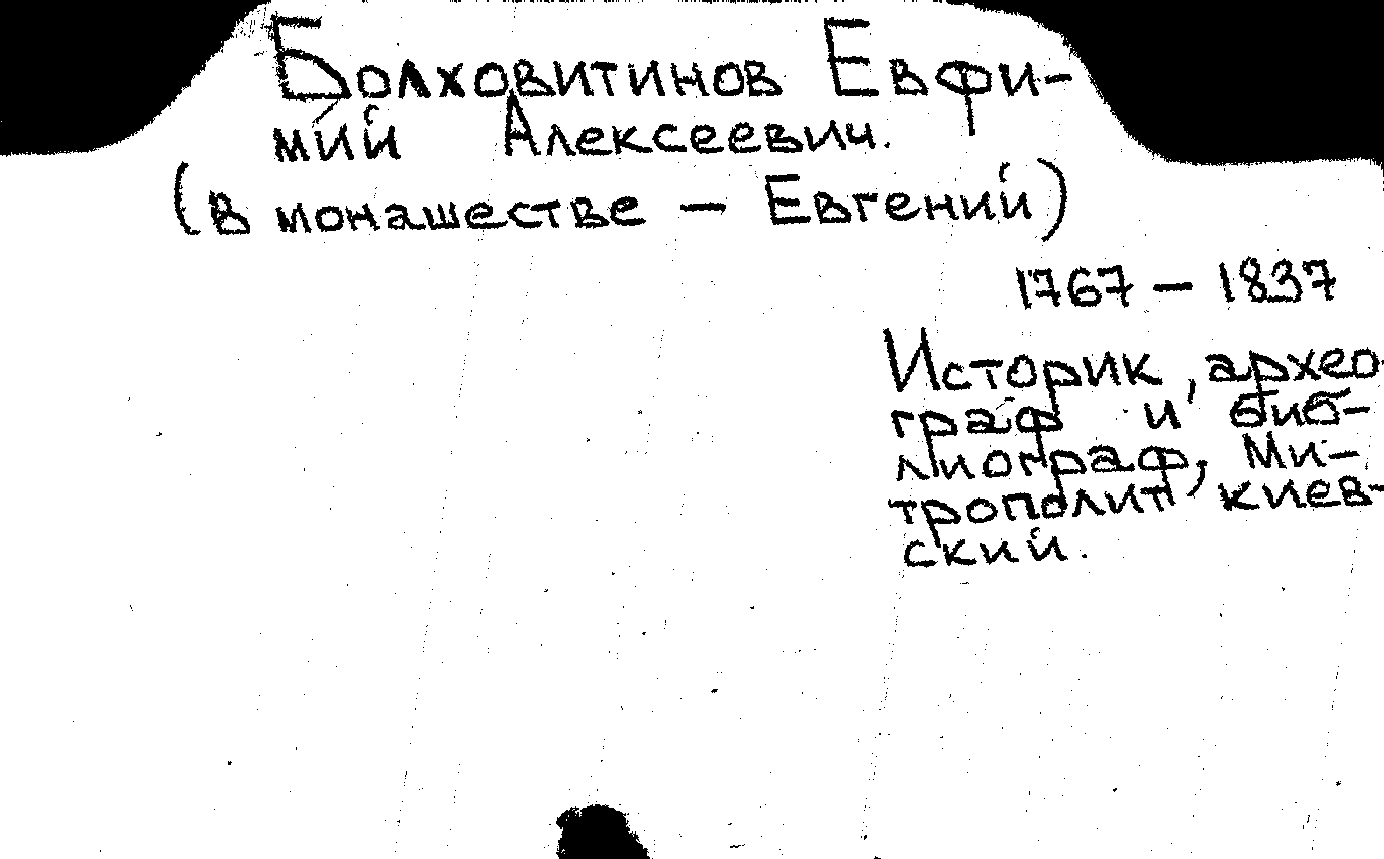 Болховитинов Евфи-
мий Алексеевич.
(в монашестве — Евгений)
1767 — 1837
Историк, архео-
граф и биб-
лиограф, Ми-
трополит киев-
ский.